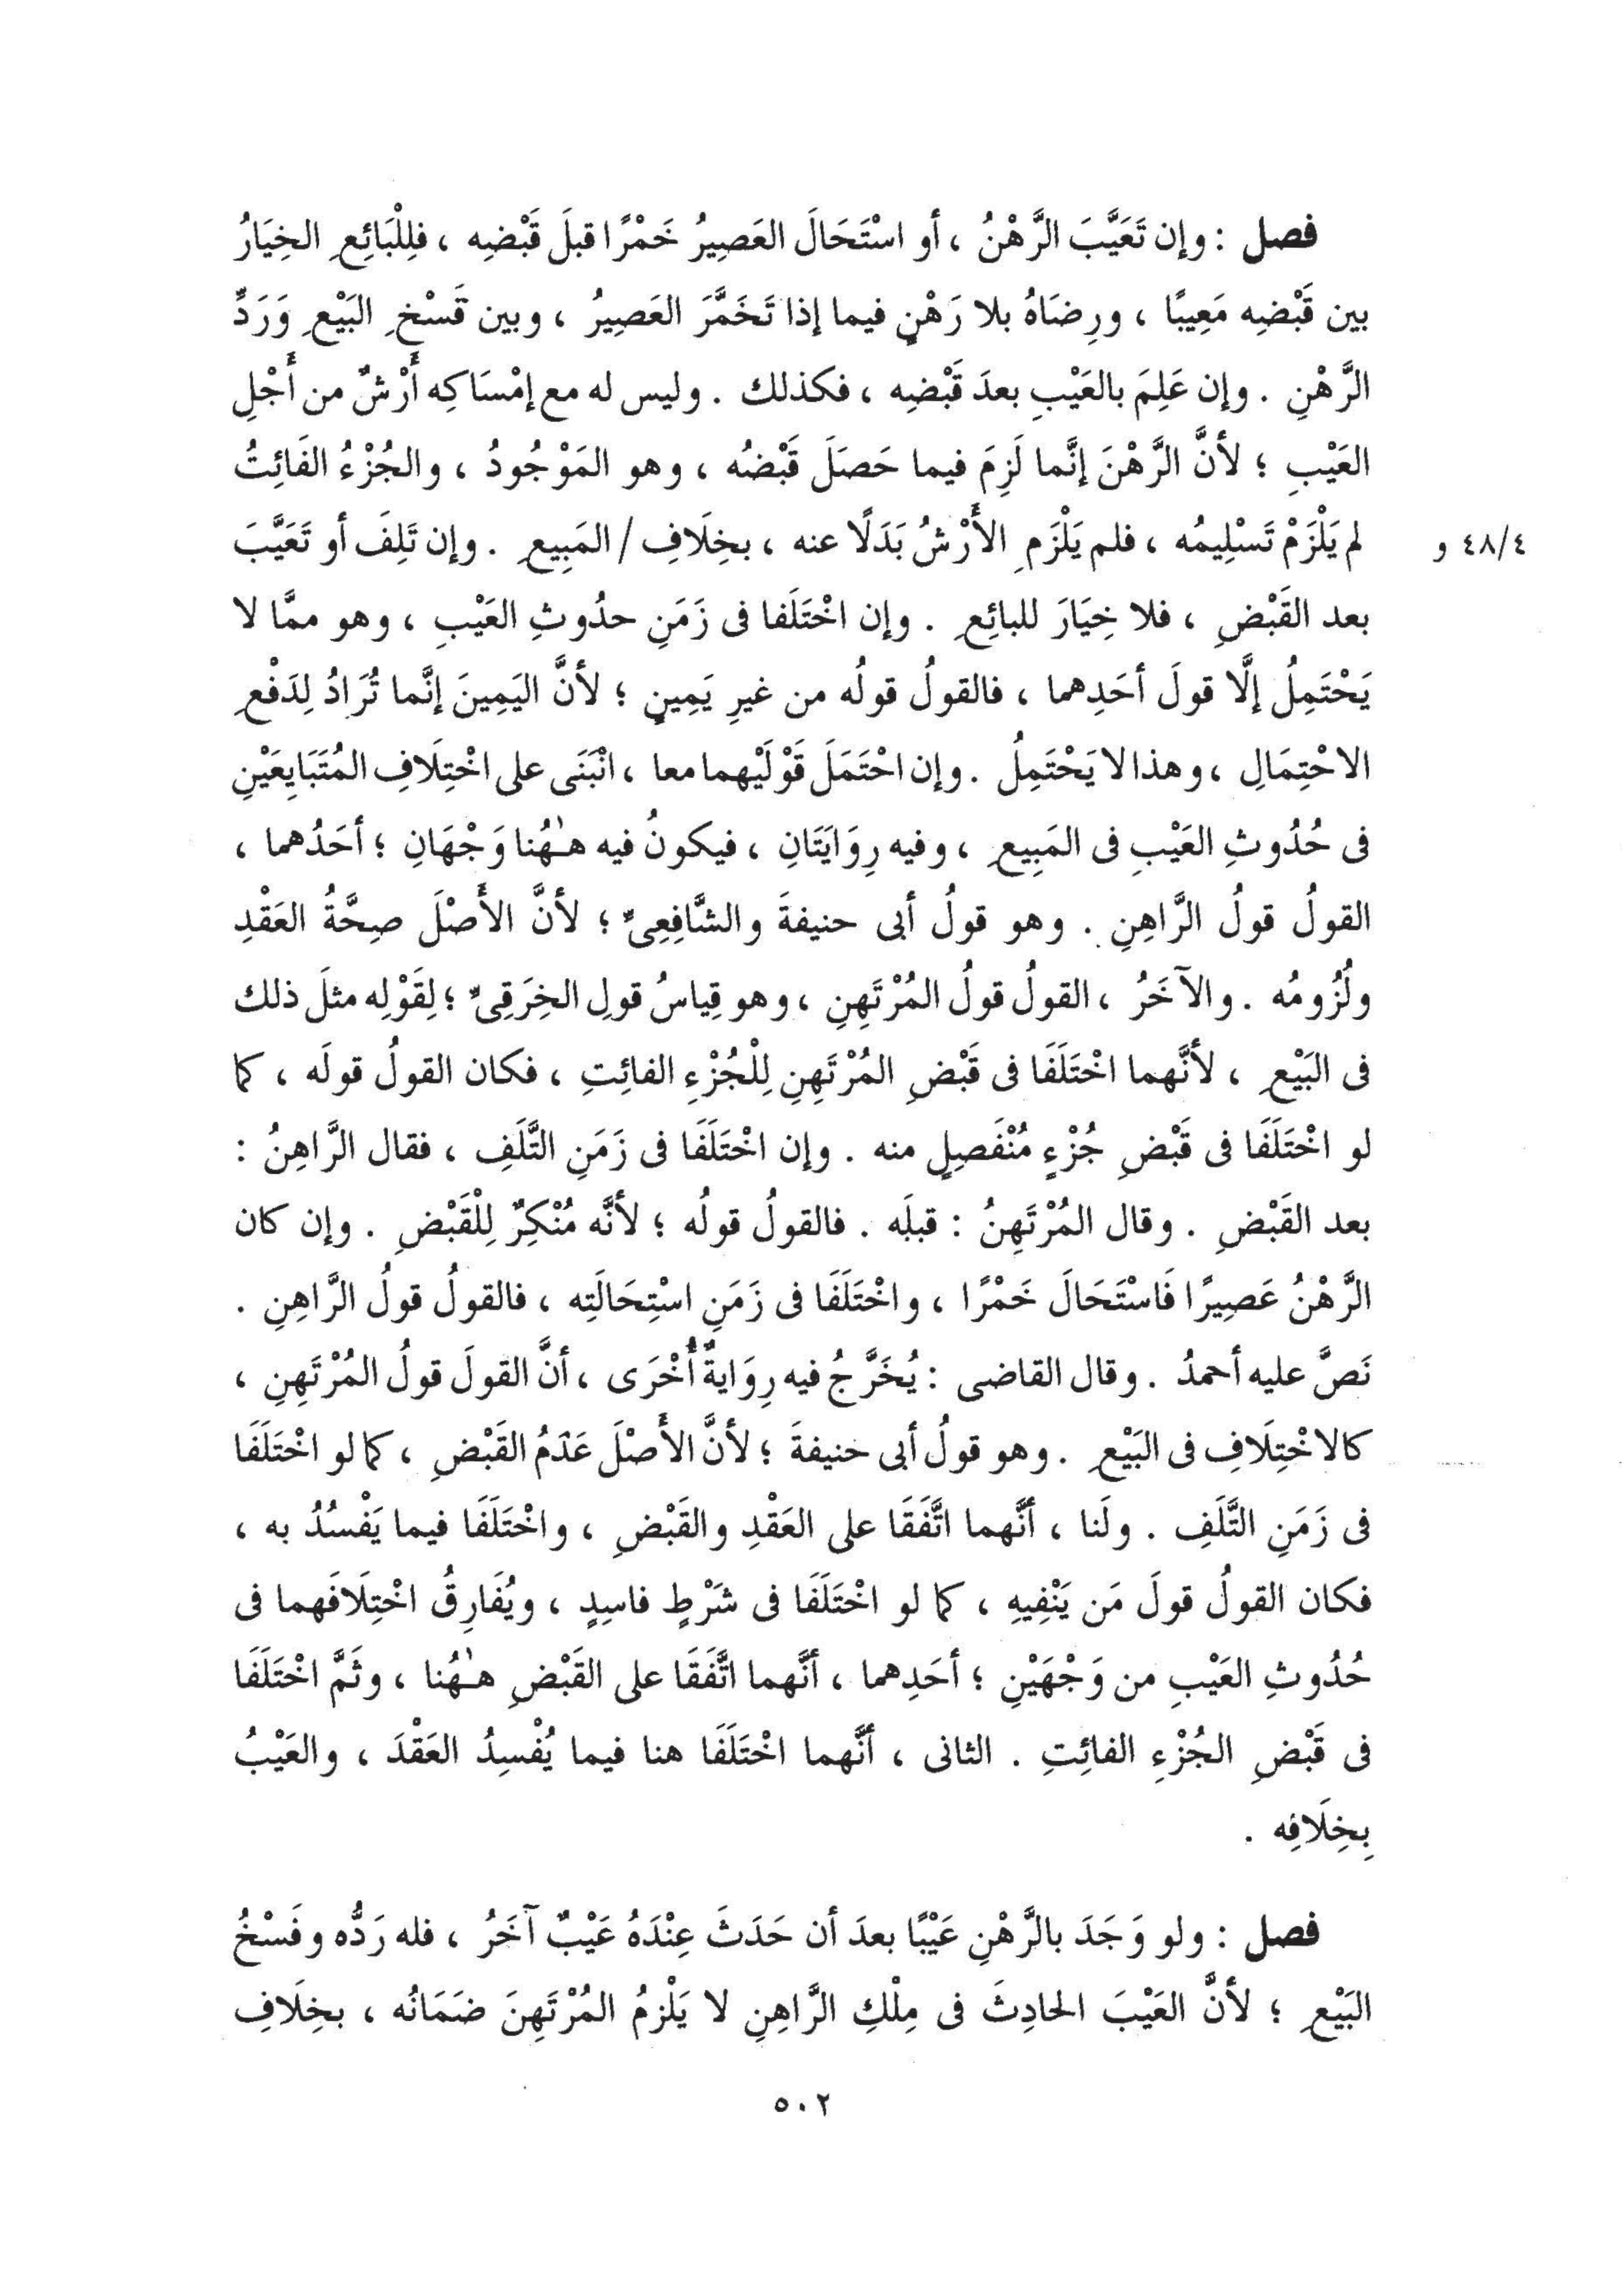 فصل : وإن تَعَيَّبَ الرَّهْنُ ، أو اسْتَحَالَ العَصِيرُ خَمْرًا قبلَ قَبْضِه ، فلِلْبَائِعِ الخِيَارُ
بين قَبْضِه مَعِيبًا ، ورِضَاهُ بلا رَهْنٍ فيما إذا تَخَمَّرَ العَصِيرُ ، وبين فَسْخِ البَيْعِ وَرَدِّ
الرَّهْنِ . وإن عَلِمَ بالعَيْبِ بعدَ قَبْضِه ، فكذلك . وليس له مع إمْسَاكِه أَرْشٌ من أَجْلِ
العَيْبِ ؛ لأنَّ الرَّهْنَ إنَّما لَزِمَ فيما حَصَلَ قَبْضُه ، وهو المَوْجُودُ ، والجُزْءُ الفَائِتُ
لم يَلْزَمْ تَسْلِيمُه ، فلم يَلْزَمِ الأَرْشُ بَدَلًا عنه ، بخِلَافِ / المَبِيعِ . وإن تَلِفَ أو تَعَيَّبَ
٤٨/٤ و
بعد القَبْضِ ، فلا خِيَارَ للبائِعِ . وإن اخْتَلَفا فى زَمَنِ حدُوثِ العَيْبِ ، وهو ممَّا لا
يَحْتَمِلُ إلَّا قولَ أحَدِهما ، فالقولُ قولُه من غيرِ يَمِينٍ ؛ لأنَّ اليَمِينَ إنَّما تُرَادُ لِدَفْعِ
الاحْتِمَالِ ، وهذا لا يَحْتَمِلُ . وإن احْتَمَلَ قَوْلَيْهما معا ، انْبَنَى على اخْتِلَافِ المُتَبَايِعَيْنِ
فى حُدُوثِ العَيْبِ فى المَبِيعِ ، وفيه رِوَايَتَانِ ، فيكونُ فيه هـٰهُنا وَجْهَانِ ؛ أحَدُهما ،
القولُ قولُ الرَّاهِنِ . وهو قولُ أبى حنيفةَ والشَّافِعِىِّ ؛ لأنَّ الأَصْلَ صِحَّةُ العَقْدِ
ولُزُومُه . والآخَرُ ، القولُ قولُ المُرْتَهِنِ ، وهو قِياسُ قولِ الخِرَقِىِّ ؛ لِقَوْلِه مثلَ ذلك
فى البَيْعِ ، لأنَّهما اخْتَلَفَا فى قَبْضِ المُرْتَهِنِ لِلْجُزْءِ الفائِتِ ، فكان القولُ قولَه ، كما
لو اخْتَلَفَا فى قَبْضِ جُزْءٍ مُنْفَصِلٍ منه . وإن اخْتَلَفَا فى زَمَنِ التَّلَفِ ، فقال الرَّاهِنُ :
بعد القَبْضِ . وقال المُرْتَهِنُ : قبلَه . فالقولُ قولُه ؛ لأنَّه مُنْكِرٌ لِلْقَبْضِ . وإن كان
الرَّهْنُ عَصِيرًا فَاسْتَحَالَ خَمْرًا ، واخْتَلَفَا فى زَمَنِ اسْتِحَالَتِه ، فالقولُ قولُ الرَّاهِنِ .
نَصَّ عليه أحمدُ . وقال القاضى : يُخَرَّجُ فيه رِوَايةٌ أُخْرَى ، أنَّ القولَ قولُ المُرْتَهِنِ ،
كالاخْتِلَافِ فى البَيْعِ . وهو قولُ أبى حنيفةَ ؛ لأنَّ الأَصْلَ عَدَمُ القَبْضِ ، كما لو اخْتَلَفَا
فى زَمَنِ التَّلَفِ . ولَنا ، أنَّهما اتَّفَقَا على العَقْدِ والقَبْضِ ، واخْتَلَفَا فيما يَفْسُدُ به ،
فكان القولُ قولَ مَن يَنْفِيهِ ، كما لو اخْتَلَفَا فى شَرْطٍ فاسِدٍ ، ويُفَارِقُ اخْتِلَافَهما فى
حُدُوثِ العَيْبِ من وَجْهَيْنِ ؛ أحَدِهما ، أنَّهما اتَّفَقَا على القَبْضِ هـٰهُنا ، وثَمَّ اخْتَلَفَا
فى قَبْضِ الجُزْءِ الفائِتِ . الثانى ، أنَّهما اخْتَلَفَا هنا فيما يُفْسِدُ العَقْدَ ، والعَيْبُ
بِخِلَافِه .
فصل : ولو وَجَدَ بالرَّهْنِ عَيْبًا بعدَ أن حَدَثَ عِنْدَهُ عَيْبٌ آخَرُ ، فله رَدُّه وفَسْخُ
البَيْعِ ؛ لأنَّ العَيْبَ الحادِثَ فى مِلْكِ الرَّاهِنِ لا يَلْزمُ المُرْتَهِنَ ضَمَانُه ، بخِلَافِ
٥٠٢